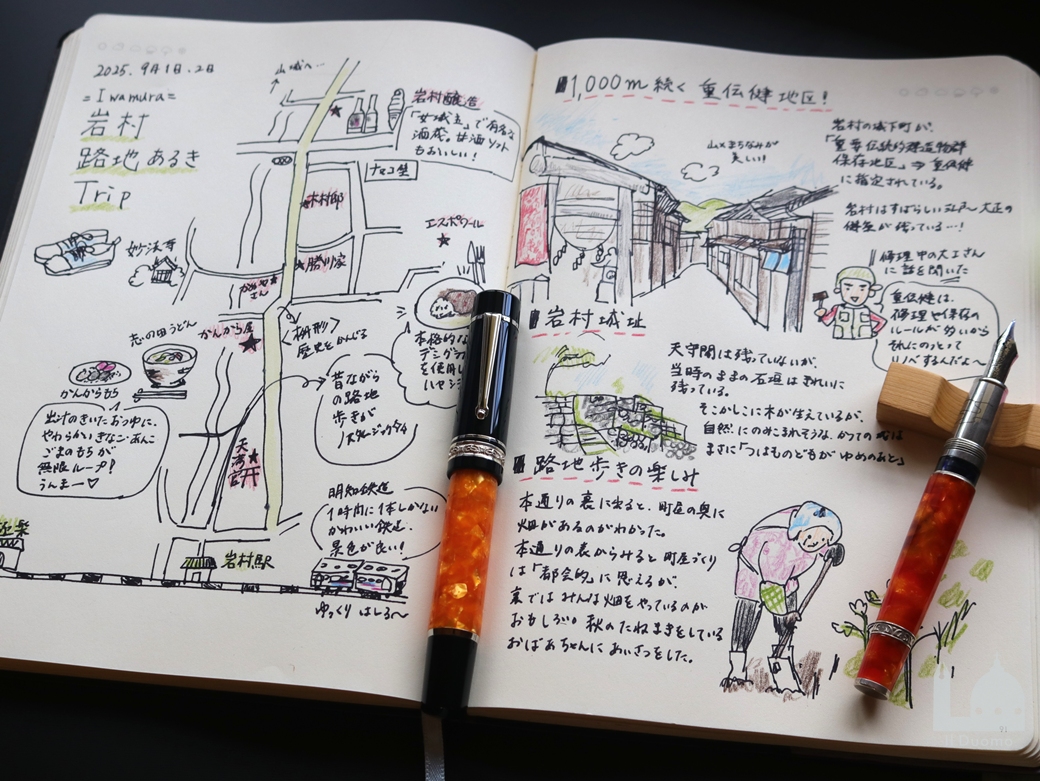 2025. 9月1日.2日
=Iwamura=
岩村
路地あるき
Trip
山城へ…
岩村醸造
「女城主」で有名な
酒蔵。甘酒ソフト
もおいしい!
ナマコ壁
木村邸
勝川家
エスポワール
妙法寺
かんから屋
〈枡形〉
歴史をかんじる
志の田うどん
かんからもち
出汁のきいたおつゆに、
やわらかいきなこ・あんこ
ごまのもちが
無限ループ!
うんまー♡
昔ながら
の路地
歩きが
ノスタルジックタイム
本格的な
デミグラ
を使用し
ハヤシラ
天満宮
明知鉄道
1時間に1本しかない
かわいい鉄道。
景色が良い!
極楽
岩村駅
ゆっくりはしる〜
1,000m続く 重伝健地区!
山×まちなみが
美しい!!
岩村の城下町が、
「重要伝統的建造物群
保存地区」⇒重伝健
に指定されている。
岩村はすばらしい江戸〜大正の
街並が残っている…!
修理中の大工さん
に話を聞いた
重伝健は、
修理や保存の
ルールが多いから
それにのっとって
リノベするんだよ〜
岩村城址
天守閣は残っていないが、
当時のままの石垣はきれいに
残っている。
そこかしこに木が生えているが、
自然にのみこまれそうな、かつての城は
まさに「つはものどもが ゆめのあと」
路地歩きの楽しみ
本通りの裏に出ると、町屋の奥に
畑があるのがわかった。
本通りの表からみると 町屋づくり
は「都会的」に思えるが、
裏では みんな畑をやっているのが
おもしろい。秋のたねまきをしている
おばあちゃんに あいさつをした。
Il Duomo